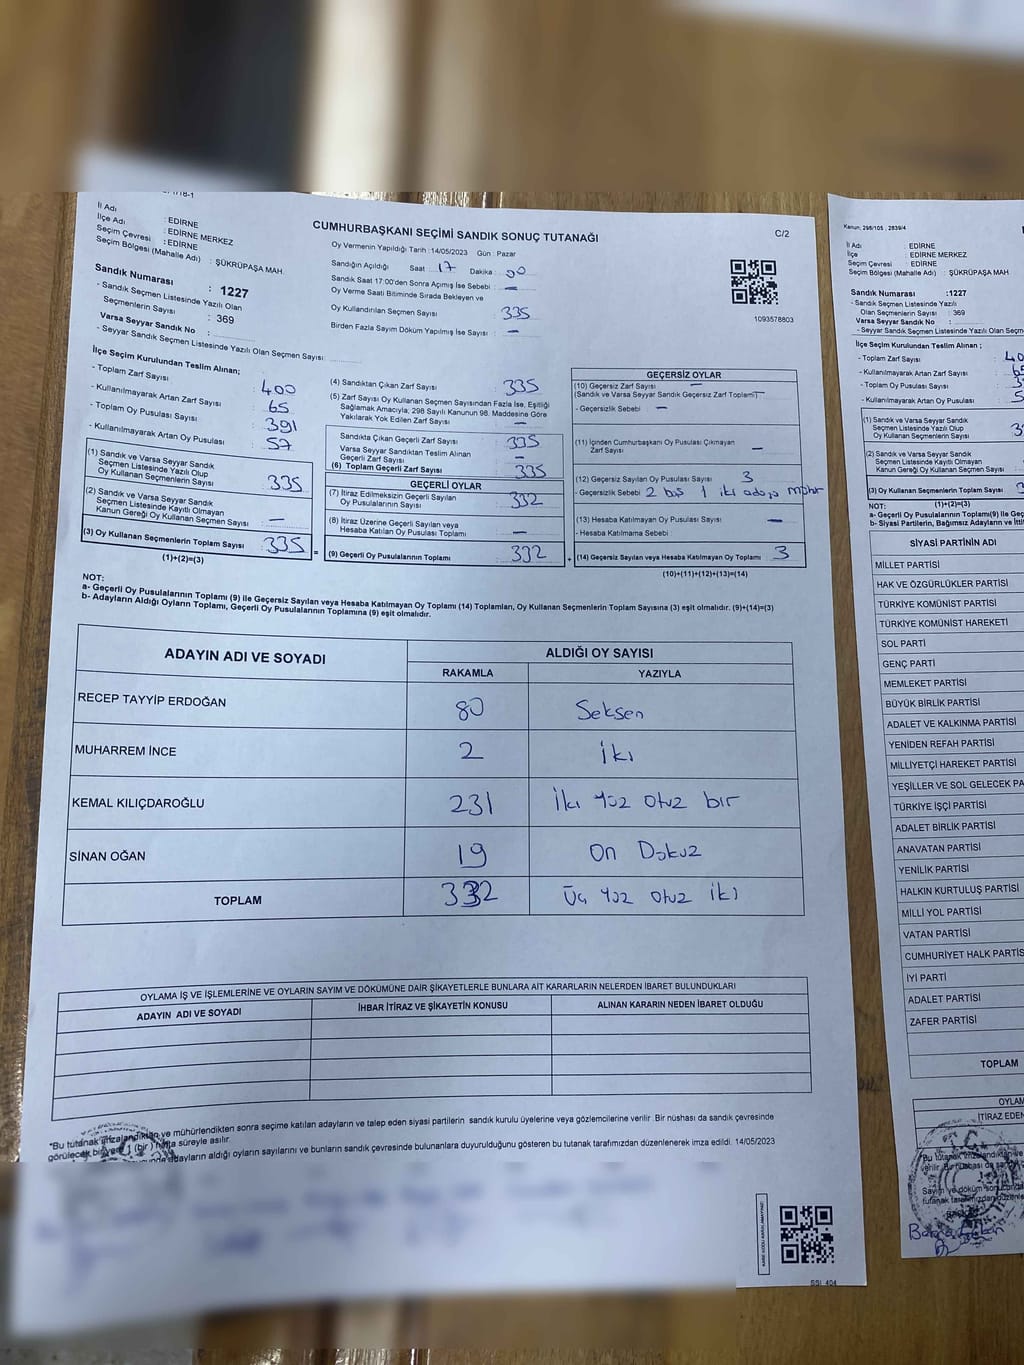 CUMHURBAŞKANI SEÇİMİ SANDIK SONUÇ TUTANAĞI
C/2
İl Adı : EDİRNE
İlçe Adı : EDİRNE MERKEZ
Seçim Çevresi : EDİRNE
Seçim Bölgesi (Mahalle Adı) : ŞÜKRÜPAŞA MAH.
Sandık Numarası : 1227
- Sandık Seçmen Listesinde Yazılı Olan
Seçmenlerin Sayısı : 369
Varsa Seyyar Sandık No :
- Seyyar Sandık Seçmen Listesinde Yazılı Olan Seçmen Sayısı:
Oy Vermenin Yapıldığı Tarih :14/05/2023 Gün : Pazar
Sandığın Açıldığı Saat 17 Dakika
Sandık Saat 17:00'den Sonra Açılmış İse Sebebi : —
Oy Verme Saati Bitiminde Sırada Bekleyen ve
Oy Kullandırılan Seçmen Sayısı : 335
Birden Fazla Sayım Döküm Yapılmış İse Sayısı : —
1093578803
İlçe Seçim Kurulundan Teslim Alınan;
- Toplam Zarf Sayısı : 400
- Kullanılmayarak Artan Zarf Sayısı : 65
- Toplam Oy Pusulası Sayısı : 391
- Kullanılmayarak Artan Oy Pusulası : 57
(1) Sandık ve Varsa Seyyar Sandık
Seçmen Listesinde Yazılı Olup
Oy Kullanan Seçmenlerin Sayısı : 335
(2) Sandık ve Varsa Seyyar Sandık
Seçmen Listesinde Kayıtlı Olmayan
Kanun Gereği Oy Kullanan Seçmen Sayısı : —
(3) Oy Kullanan Seçmenlerin Toplam Sayısı : 335 =
(1)+(2)=(3)
(4) Sandıktan Çıkan Zarf Sayısı : 335
(5) Zarf Sayısı Oy Kullanan Seçmen Sayısından Fazla İse, Eşitliği
Sağlamak Amacıyla; 298 Sayılı Kanunun 98. Maddesine Göre
Yakılarak Yok Edilen Zarf Sayısı : —
Sandıkta Çıkan Geçerli Zarf Sayısı : 335
Varsa Seyyar Sandıktan Teslim Alınan
Geçerli Zarf Sayısı : —
(6) Toplam Geçerli Zarf Sayısı : 335
GEÇERLİ OYLAR
(7) İtiraz Edilmeksizin Geçerli Sayılan
Oy Pusulalarının Sayısı : 332
(8) İtiraz Üzerine Geçerli Sayılan veya
Hesaba Katılan Oy Pusulası Toplamı : —
(9) Geçerli Oy Pusulalarının Toplamı : 332 +
GEÇERSİZ OYLAR
(10) Geçersiz Zarf Sayısı : —
(Sandık ve Varsa Seyyar Sandık Geçersiz Zarf Toplamı)
- Geçersizlik Sebebi : —
(11) İçinden Cumhurbaşkanı Oy Pusulası Çıkmayan
Zarf Sayısı : —
(12) Geçersiz Sayılan Oy Pusulası Sayısı : 3
- Geçersizlik Sebebi : 2 boş 1 iki adaya mühür
(13) Hesaba Katılmayan Oy Pusulası Sayısı : —
- Hesaba Katılmama Sebebi
(14) Geçersiz Sayılan veya Hesaba Katılmayan Oy Toplamı : 3
(10)+(11)+(12)+(13)=(14)
NOT:
a- Geçerli Oy Pusulalarının Toplamı (9) ile Geçersiz Sayılan veya Hesaba Katılmayan Oy Toplamı (14) Toplamları, Oy Kullanan Seçmenlerin Toplam Sayısına (3) eşit olmalıdır. (9)+(14)=(3)
b- Adayların Aldığı Oyların Toplamı, Geçerli Oy Pusulalarının Toplamına (9) eşit olmalıdır.
ADAYIN ADI VE SOYADI ALDIĞI OY SAYISI
RAKAMLA YAZIYLA
RECEP TAYYİP ERDOĞAN 80 Seksen
MUHARREM İNCE 2 İki
KEMAL KILIÇDAROĞLU 231 İki yüz otuz bir
SİNAN OĞAN 19 On Dokuz
TOPLAM 332 Üç yüz otuz iki
OYLAMA İŞ VE İŞLEMLERİNE VE OYLARIN SAYIM VE DÖKÜMÜNE DAİR ŞİKAYETLERLE BUNLARA AİT KARARLARIN NELERDEN İBARET BULUNDUKLARI
ADAYIN ADI VE SOYADI İHBAR İTİRAZ VE ŞİKAYETİN KONUSU ALINAN KARARIN NEDEN İBARET OLDUĞU
"Bu tutanak imzalandıktan ve mühürlendikten sonra seçime katılan adayların ve talep eden siyasi partilerin sandık kurulu üyelerine veya gözlemcilerine verilir. Bir nüshası da sandık çevresinde
görülecek bir yere 1 (bir) hafta süreyle asılır.
adayların aldığı oyların sayılarını ve bunların sandık çevresinde bulunanlara duyurulduğunu gösteren bu tutanak tarafımızdan düzenlenerek imza edildi. 14/05/2023
Kanun: 298/105 , 2839/4
İl Adı : EDİRNE
İlçe : EDİRNE MERKEZ
Seçim Çevresi : EDİRNE
Seçim Bölgesi (Mahalle Adı) : ŞÜKRÜPAŞA MAH
Sandık Numarası :1227
- Sandık Seçmen Listesinde Yazılı
Olan Seçmenlerin Sayısı : 369
Varsa Seyyar Sandık No :
- Seyyar Sandık Seçmen Listesinde Yazılı Olan
İlçe Seçim Kurulundan Teslim Alınan ;
- Toplam Zarf Sayısı :
- Kullanılmayarak Artan Zarf Sayısı :
- Toplam Oy Pusulası Sayısı :
- Kullanılmayarak Artan Oy Pusulası :
(1) Sandık ve Varsa Seyyar Sandık
Seçmen Listesinde Yazılı Olup
Oy Kullanan Seçmenlerin Sayısı :
(2) Sandık ve Varsa Seyyar Sandık
Seçmen Listesinde Kayıtlı Olmayan
Kanun Gereği Oy Kullanan Seçmen Sayısı :
(3) Oy Kullanan Seçmenlerin Toplam Sayısı :
(1)+(2)=(3)
NOT:
a- Geçerli Oy Pusulalarının Toplamı(9) ile
b- Siyasi Partilerin, Bağımsız Adayların ve
SİYASİ PARTİNİN ADI
MİLLET PARTİSİ
HAK VE ÖZGÜRLÜKLER PARTİSİ
TÜRKİYE KOMÜNİST PARTİSİ
TÜRKİYE KOMÜNİST HAREKETİ
SOL PARTİ
GENÇ PARTİ
MEMLEKET PARTİSİ
BÜYÜK BİRLİK PARTİSİ
ADALET VE KALKINMA PARTİSİ
YENİDEN REFAH PARTİSİ
MİLLİYETÇİ HAREKET PARTİSİ
YEŞİLLER VE SOL GELECEK PA
TÜRKİYE İŞÇİ PARTİSİ
ADALET BİRLİK PARTİSİ
ANAVATAN PARTİSİ
YENİLİK PARTİSİ
HALKIN KURTULUŞ PARTİSİ
MİLLİ YOL PARTİSİ
VATAN PARTİSİ
CUMHURİYET HALK PARTİSİ
İYİ PARTİ
ADALET PARTİSİ
ZAFER PARTİSİ
TOPLAM